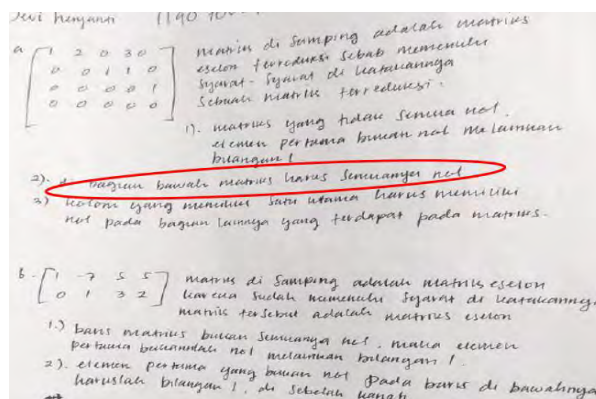 Dewi Heryanti 1190
a [1 2 0 3 0 matriks di Samping adalah matriks
0 0 1 1 0 eselon terreduksi Sebab memenuhi
0 0 0 0 1 Syarat-Syarat di katakannya
0 0 0 0 0] Sebuah matriks terreduksi.
1). matriks yang tidak Semua nol.
elemen pertama bukan nol melainkan
bilangan 1
2). di bagian bawah matriks harus Semuanya nol
3) kolom yang memiliki satu utama harus memiliki
nol pada bagian lainnya yang terdapat pada matriks.
b. [1 -7 5 5 matriks di Samping adalah matriks eselon
0 1 3 2] karena Sudah memenuhi Syarat di katakannya
matriks tersebut adalah matriks eselon
1.) baris matriks bukan Semuanya nol. maka elemen
pertama bukanlah nol melainkan bilangan 1.
2). elemen pertama yang bukan nol pada baris di bawahnya
haruslah bilangan 1. di Sebelah kanan